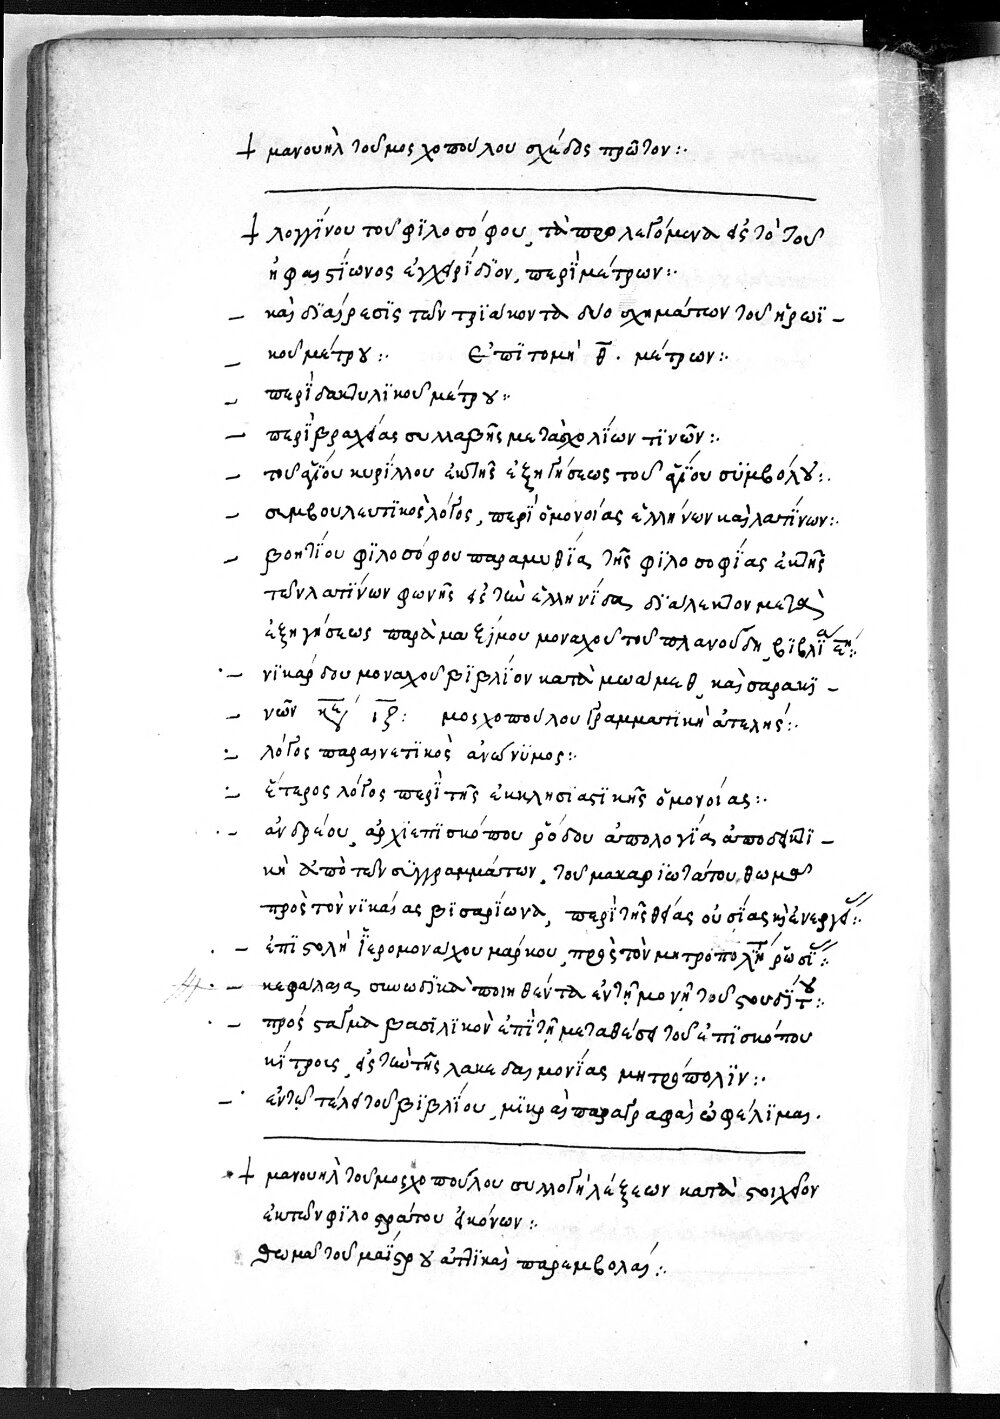 μανουὴλ τοῦ μοσχοπούλου σχέδος πρῶτον:·
λογγίνου τοῦ φϊλοσόφου, τὰ προλεγόμενα εἰς τὸ τοῦ
ἡφαιστΐωνος ἐγχειρΐδϊον, περὶ μέτρων:·
καὶ δϊαίρεσϊς τῶν τριάκοντα δύο σχημάτων τοῦ ἡρωϊ-
κοῦ μέτρου:· Ἐπϊτομὴ θ. μέτρων:·
περὶ δακτυλϊκοῦ μέτρου:·
περὶ βραχείας συλλαβῆς μετὰ σχολΐων τϊνῶν:·
τοῦ ἁγΐου κυρίλλου ἐκ τῆς ἐξηγήσεως τοῦ ἁγΐου συμβόλου:·
συμβουλευτϊκὸς λόγος, περὶ ὁμονοίας ἑλλήνων καὶ λατΐνων:·
βοητΐου φϊλοσόφου παραμυθία, τῆς φϊλοσοφΐας ἐκ τῆς
τῶν λατΐνων φωνῆς εἰς τὴν ἑλληνΐδα, δϊάλεκτον μετὰ
ἐξηγήσεως παρὰ μαξΐμου μοναχοῦ τοῦ πλανούδη, βϊβλΐα ε̄:·
νϊκάρδου μοναχοῦ βϊβλΐον κατὰ μωαμεθ, καὶ σαρακϊ-
νῶν κεφ ιζ: μοσχοπούλου γραμματϊκὴ ἀτελής:·
λόγος παραινετϊκὸς ἀνωνύμος:·
ἕτερος λόγος περὶ τῆς ἐκκλησϊαστϊκῆς ὁμονοίας:·
ἀνδρέου, ἀρχϊεπϊσκόπου ῥόδου ἀπολογΐα ἀποδεικτϊ-
κὴ ἀπὸ τῶν συγγραμμάτων, τοῦ μακαρϊωτάτου θωμᾶ
πρὸς τὸν νϊκαίας βϊσαρΐωνα, περὶ τῆς θείας οὐσΐας καὶ ἐνεργεί:·
ἐπϊστολὴ ἱερομονάχου μάρκου, πρὸς τὸν μητροπολΐτην ῥωσΐ:·
κεφάλαια συνωδϊκὰ ποιηθέντα ἐν τῇ μονῇ τοῦ στουδΐου:·
πρόσταγμα βασϊλϊκὸν ἐπὶ τῇ μεταθέσει τοῦ ἐπϊσκόπου
κΐτρους, εἰς τὴν τῆς λακεδαιμονΐας μητρόπολϊν:·
ἐν τῷ τέλει τοῦ βϊβλΐου, μϊκρὰς παραγραφὰς ὠφελΐμας.
μανουὴλ τοῦ μοσχοπούλου συλλογὴ λέξεων κατὰ στοιχεῖον
ἐκ τῶν φϊλοστράτου εἰκόνων:·
θωμᾶ τοῦ μαΐστρου ἀττϊκὰς παρεμβολάς:·